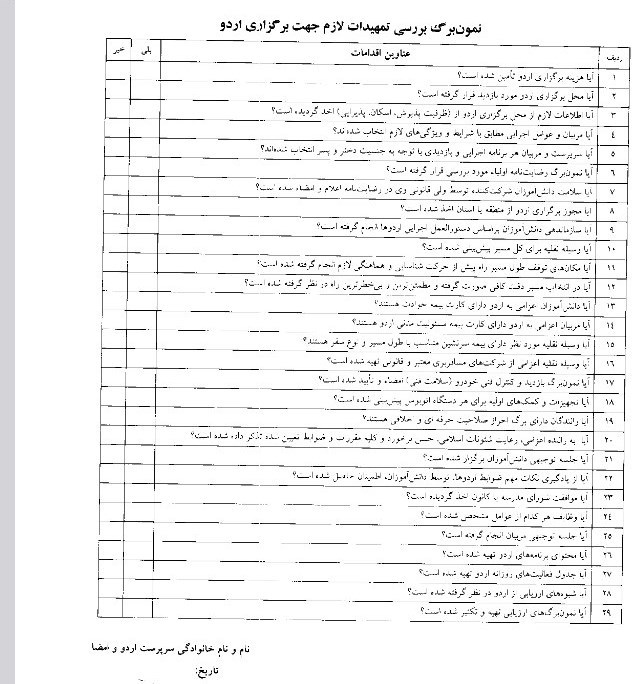 نمون‌برگ بررسی تمهیدات لازم جهت برگزاری اردو
ردیف عناوین اقدامات بلی خیر
۱ آیا هزینه برگزاری اردو تأمین شده است؟
۲ آیا محل برگزاری اردو مورد بازدید قرار گرفته است؟
۳ آیا اطلاعات لازم از محل برگزاری اردو از (ظرفیت پذیرش، اسکان، پذیرایی) اخذ گردیده است؟
۴ آیا مربیان و عوامل اجرایی مطابق با شرایط و ویژگی‌های لازم انتخاب شده‌اند؟
۵ آیا سرپرست و مربیان هر برنامه اجرایی و بازدیدی با توجه به جنسیت دختر و پسر انتخاب شده‌اند؟
۶ آیا نمون‌برگ رضایت‌نامه اولیاء مورد بررسی قرار گرفته است؟
۷ آیا سلامت دانش‌آموزان شرکت‌کننده توسط ولی قانونی وی در رضایت‌نامه اعلام و امضاء شده است؟
۸ آیا مجوز برگزاری اردو از منطقه یا استان اخذ شده است؟
۹ آیا سازماندهی دانش‌آموزان براساس دستورالعمل اجرایی اردوها انجام گرفته است؟
۱۰ آیا وسیله نقلیه برای کل مسیر پیش‌بینی شده است؟
۱۱ آیا مکان‌های توقف طول مسیر راه پیش از حرکت شناسایی و هماهنگی لازم انجام گرفته شده است؟
۱۲ آیا در انتخاب مسیر دقت کافی صورت گرفته و مطمئن‌ترین و بی‌خطرترین راه در نظر گرفته شده است؟
۱۳ آیا دانش‌آموزان اعزامی به اردو دارای کارت بیمه حوادث هستند؟
۱۴ آیا مربیان اعزامی به اردو دارای کارت بیمه مسئولیت مدنی اردو هستند؟
۱۵ آیا وسیله نقلیه مورد نظر دارای بیمه سرنشین متناسب با طول مسیر و نوع سفر هستند؟
۱۶ آیا وسیله نقلیه اعزامی از شرکت‌های مسافربری معتبر و قانونی تهیه شده است؟
۱۷ آیا نمون‌برگ بازدید و کنترل فنی خودرو (سلامت فنی) امضاء و تأیید شده است؟
۱۸ آیا تجهیزات و کمک‌های اولیه برای هر دستگاه اتوبوس پیش‌بینی شده است؟
۱۹ آیا رانندگان دارای برگ احراز صلاحیت حرفه‌ای و اخلاقی هستند؟
۲۰ آیا به راننده اعزامی، رعایت شئونات اسلامی، حسن برخورد و کلیه مقررات و ضوابط تعیین شده تذکر داده شده است؟
۲۱ آیا جلسه توجیهی دانش‌آموزان برگزار شده است؟
۲۲ آیا از یادگیری نکات مهم ضوابط اردوها، توسط دانش‌آموزان، اطمینان حاصل شده است؟
۲۳ آیا موافقت شورای مدرسه یا کانون اخذ گردیده است؟
۲۴ آیا وظایف هر کدام از عوامل مشخص شده است؟
۲۵ آیا جلسه توجیهی مربیان انجام گرفته است؟
۲۶ آیا محتوی برنامه‌های اردو تهیه شده است؟
۲۷ آیا جدول فعالیت‌های روزانه اردو تهیه شده است؟
۲۸ آیا شیوه‌های ارزیابی از اردو در نظر گرفته شده است؟
۲۹ آیا نمون‌برگ‌های ارزیابی تهیه و تکثیر شده است؟
نام و نام خانوادگی سرپرست اردو و امضا
تاریخ: